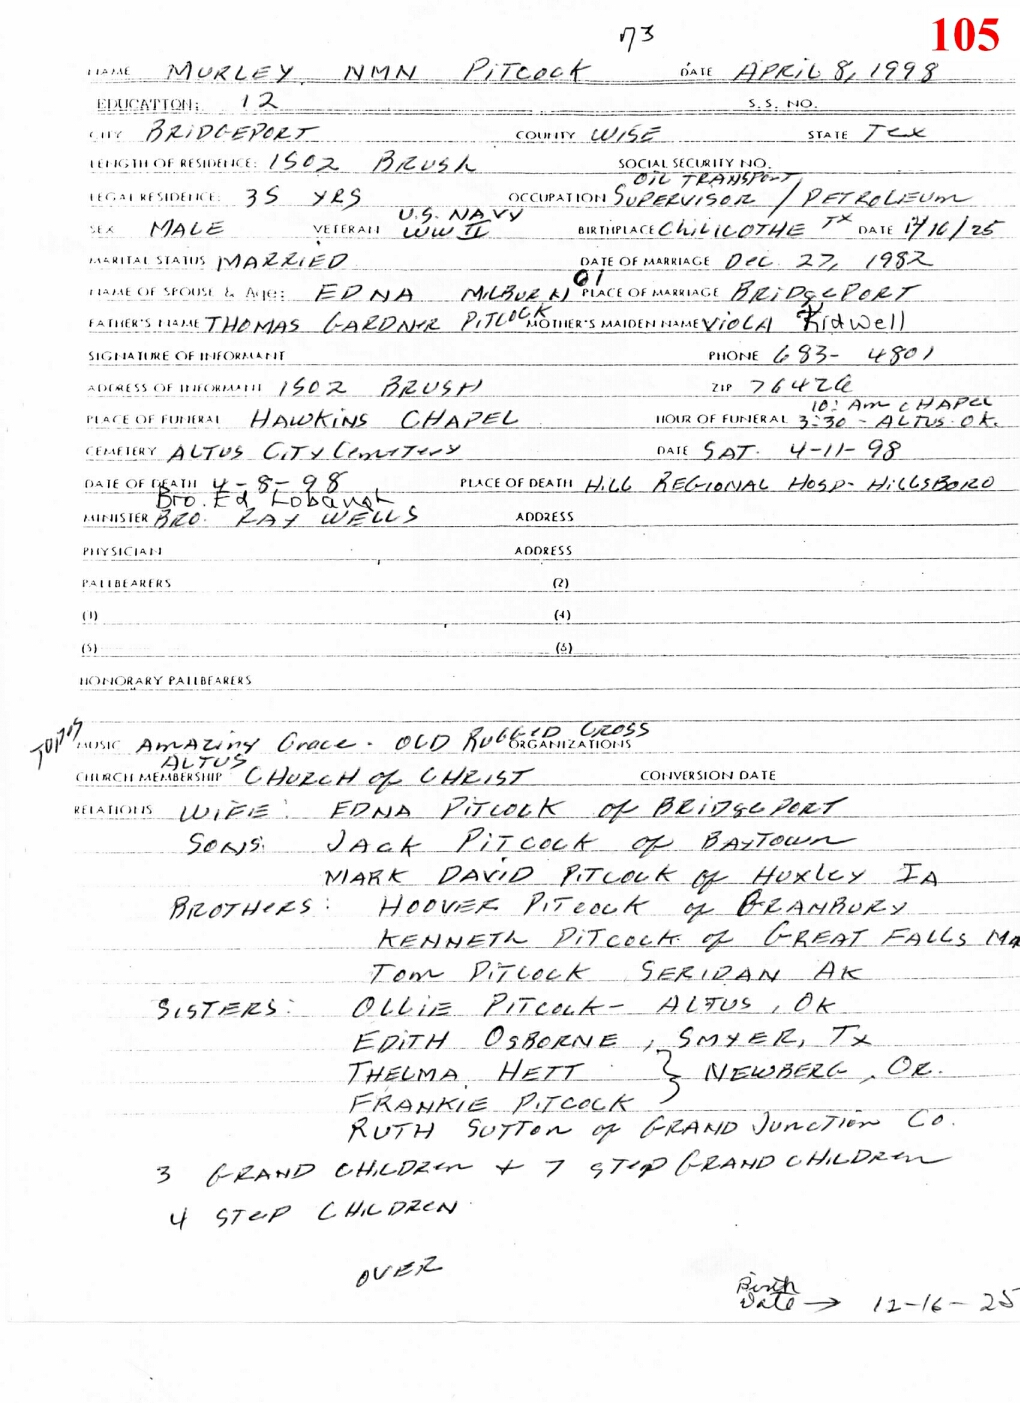 73
105
NAME MURLEY NMN PITCOCK DATE APRIL 8, 1998
EDUCATION: 12 S.S. NO.
CITY BRIDGEPORT COUNTY WISE STATE Tex
LENGTH OF RESIDENCE: 1502 BRUSH SOCIAL SECURITY NO.
OIL TRANSPORT
LEGAL RESIDENCE: 35 YRS OCCUPATION SUPERVISOR / PETROLEUM
U.S. NAVY
SEX MALE VETERAN WW II BIRTHPLACE CHILICOTHE TX DATE /16/25
MARITAL STATUS MARRIED DATE OF MARRIAGE DEC. 27, 1982
NAME OF SPOUSE & Age: EDNA MILBURN PLACE OF MARRIAGE BRIDGEPORT
FATHER'S NAME THOMAS GARDNER PITCOCK MOTHER'S MAIDEN NAME VIOLA Kidwell
SIGNATURE OF INFORMANT PHONE 683-4801
ADDRESS OF INFORMANT 1502 BRUSH ZIP 76426
10: AM CHAPEL
PLACE OF FUNERAL HAWKINS CHAPEL HOUR OF FUNERAL 3:30 - ALTUS OK.
CEMETERY ALTUS CITY CEMETERY DATE SAT. 4-11-98
DATE OF DEATH 4-8-98 PLACE OF DEATH HILL REGIONAL HOSP- HILLSBORO
Bro. Ed
MINISTER BRO. RAY WELLS ADDRESS
PHYSICIAN ADDRESS
PALLBEARERS (2)
(3) (4)
(5) (6)
HONORARY PALLBEARERS
MUSIC AMAZING GRACE - OLD RUGGED CROSS ORGANIZATIONS
ALTUS
CHURCH MEMBERSHIP CHURCH of CHRIST CONVERSION DATE
RELATIONS WIFE: EDNA PITCOCK of BRIDGEPORT
SONS: JACK PITCOCK of BAYTOWN
MARK DAVID PITCOCK of HUXLEY IA
BROTHERS: HOOVER PITCOCK of GRANBURY
KENNETH PITCOCK of GREAT FALLS
TOM PITCOCK SERIDAN AK
SISTERS: OLLIE PITCOCK - ALTUS, OK
EDITH OSBORNE, SMYER, TX
THELMA HETT } NEWBERG, OR.
FRANKIE PITCOCK
RUTH SUTTON of GRAND JUNCTION CO.
3 GRAND CHILDREN + 7 STEP GRAND CHILDREN
4 STEP CHILDREN
OVER
Birth
Date → 12-16-25